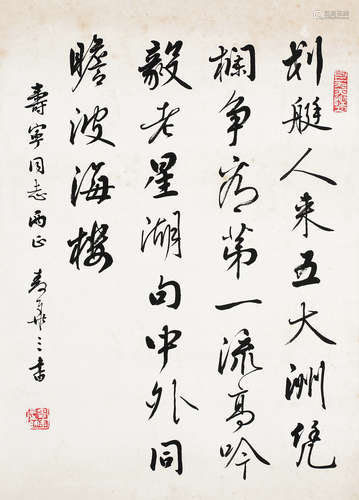 划艇人来五大洲凭
栏争看第一流高吟
毅老星湖句中外同
瞻波海楼
寿宁同志两正 秦咢生书